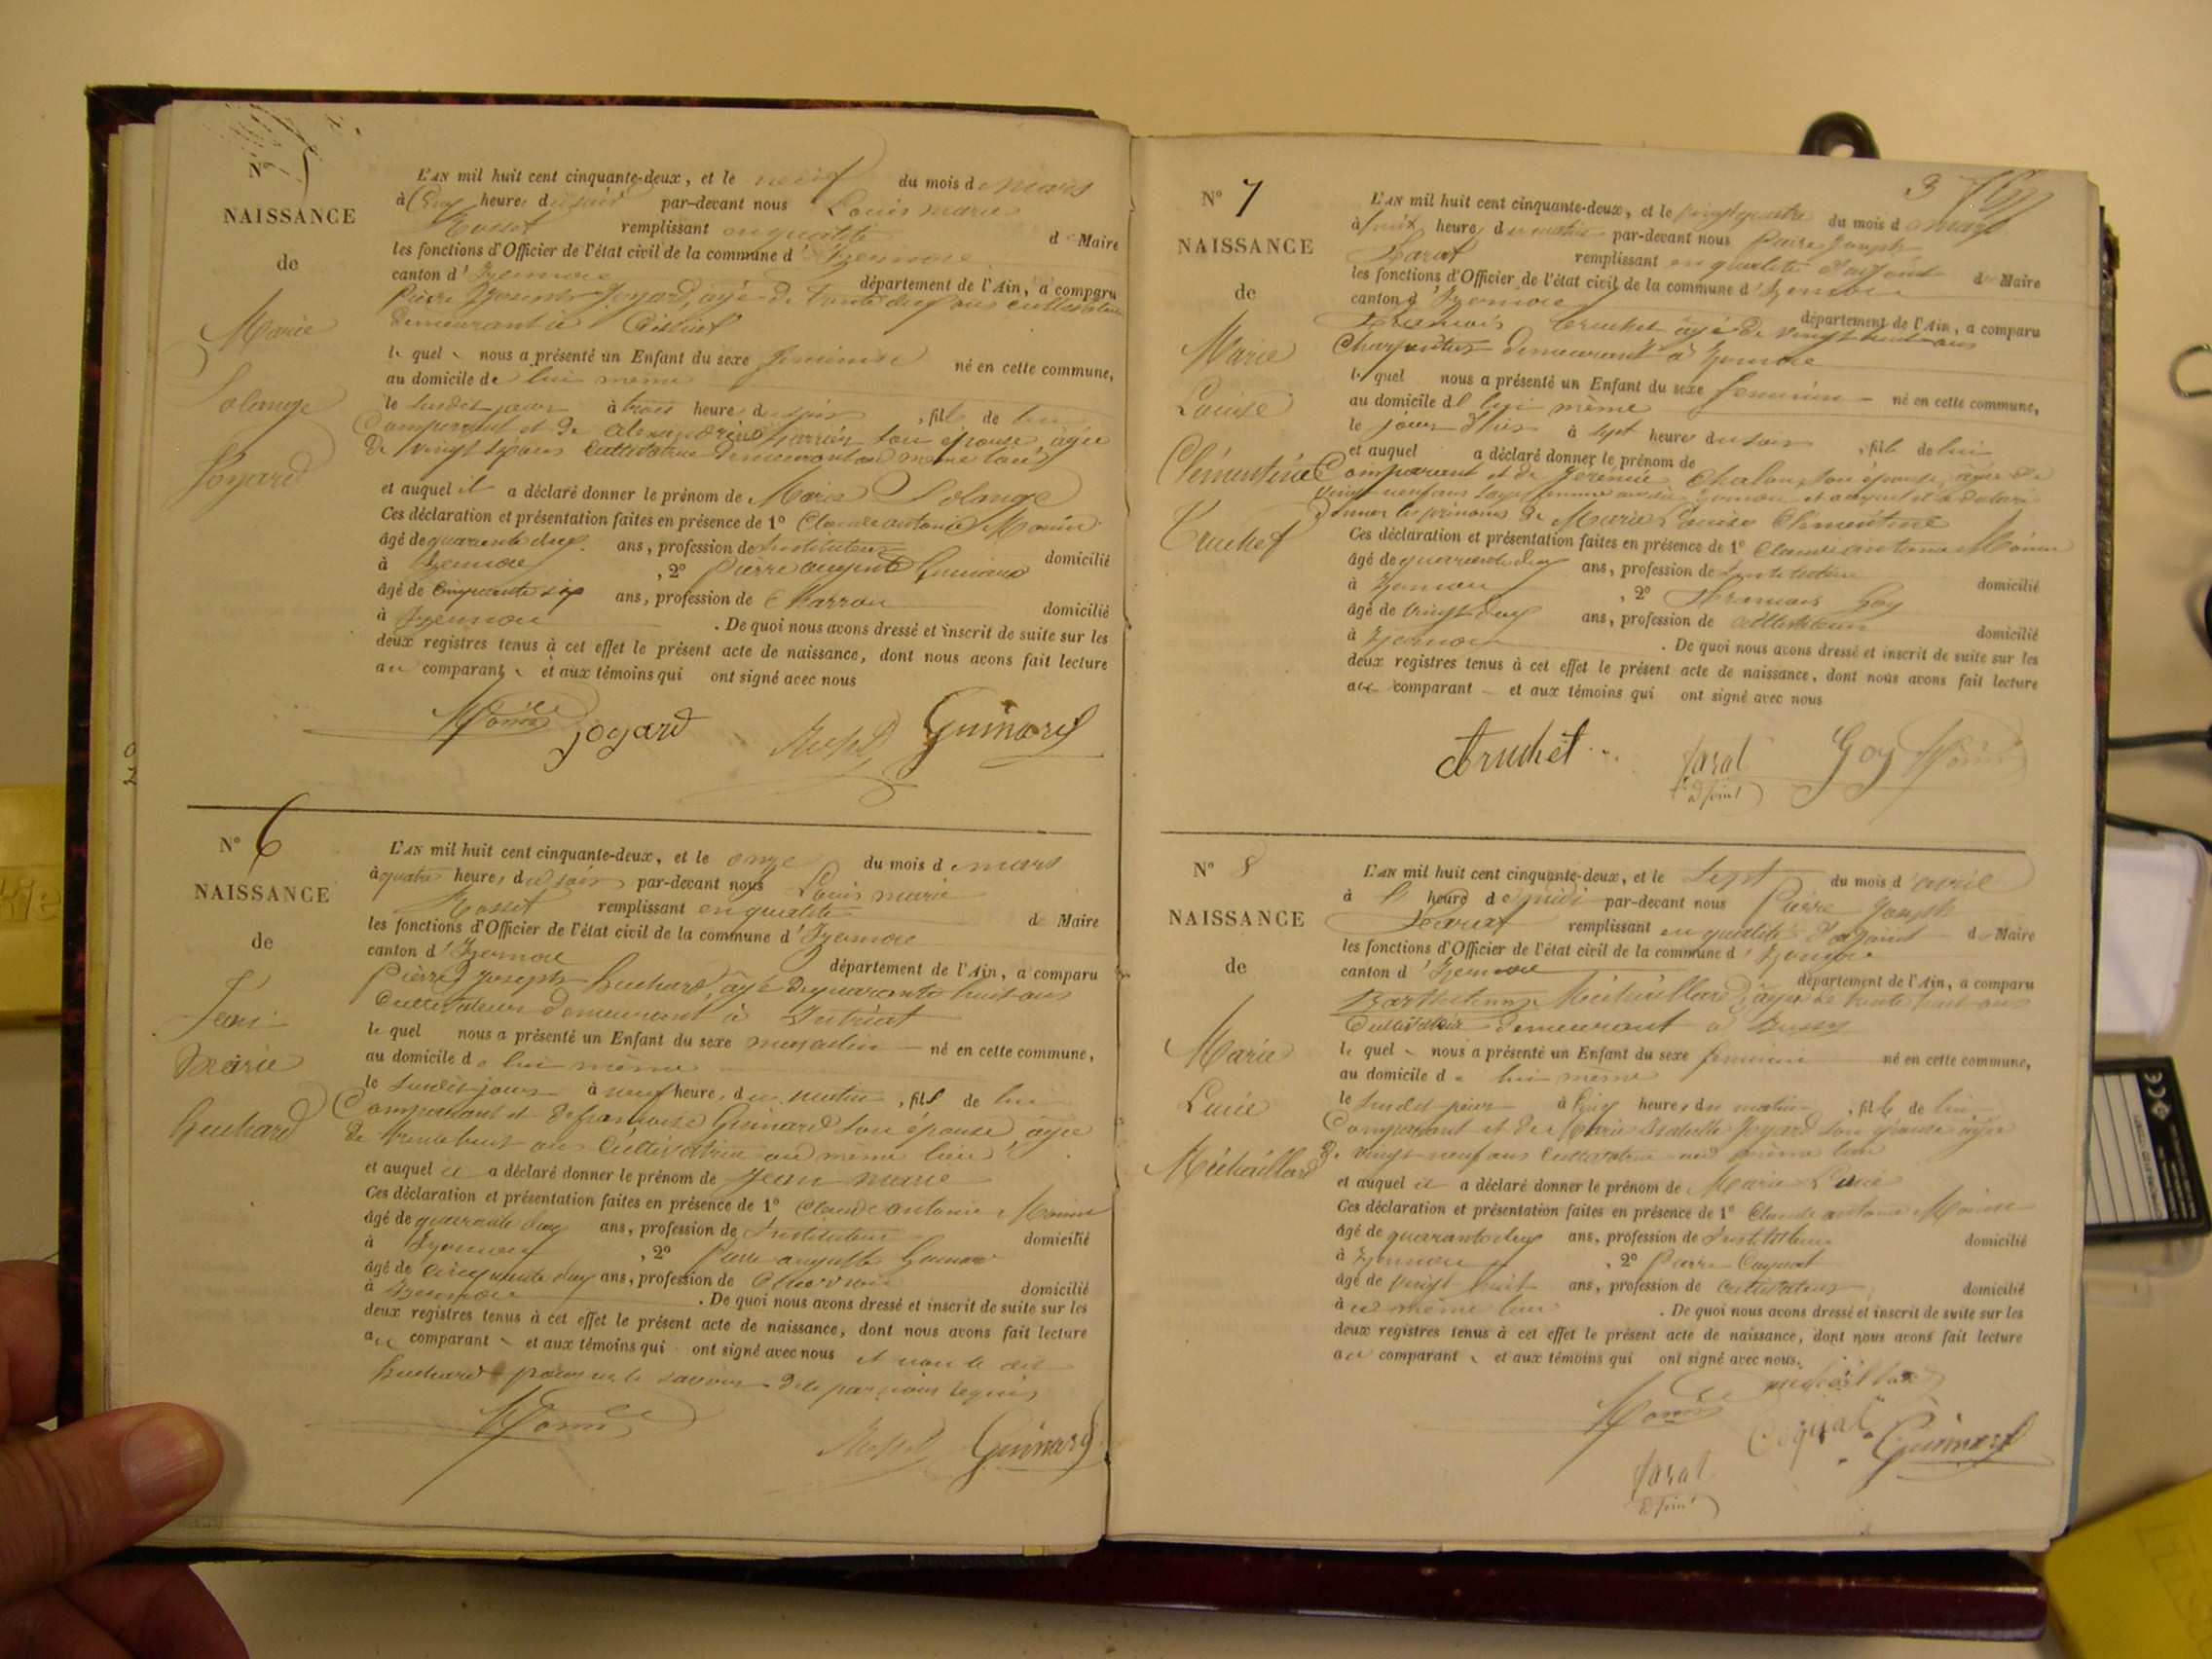 N° 5
NAISSANCE
de
Marie
Solange
Joyard
L'AN mil huit cent cinquante-deux, et le neuf du mois de mars
à cinq heures du soir par-devant nous Louis marie
Rosset remplissant en qualité de Maire
les fonctions d'Officier de l'état civil de la commune d'Izernore
canton d'Izernore département de l'Ain, a comparu
Pierre Joseph Joyard, âgé de trente deux ans cultivateur
demeurant à
le quel nous a présenté un Enfant du sexe féminin né en cette commune,
au domicile de lui même
le susdit jour à trois heures du soir, fille de lui
Comparant et de alexandrine son épouse, âgée
de vingt ans Cultivatrice demeurant au même lieu
et auquel il a déclaré donner le prénom de Marie Solange
Ces déclaration et présentation faites en présence de 1° Claude antoine Monin
âgé de quarante deux ans, profession de Instituteur domicilié
à Izernore, 2° Pierre auguste Guinard
âgé de Cinquante six ans, profession de Charron domicilié
à Izernore. De quoi nous avons dressé et inscrit de suite sur les
deux registres tenus à cet effet le présent acte de naissance, dont nous avons fait lecture
au comparant et aux témoins qui ont signé avec nous
Monin Joyard Rosset Guinard
N° 6
NAISSANCE
de
Jean
Marie
Huchard
L'AN mil huit cent cinquante-deux, et le onze du mois de mars
à quatre heures du soir par-devant nous Louis marie
Rosset remplissant en qualité de Maire
les fonctions d'Officier de l'état civil de la commune d'Izernore
canton d'Izernore département de l'Ain, a comparu
Pierre Joseph Huchard, âgé de quarante huit ans
Cultivateur demeurant à Intriat
le quel nous a présenté un Enfant du sexe masculin né en cette commune,
au domicile de lui même
le susdit jour à neuf heures du matin, fils de lui
Comparant et de françoise Guinard son épouse, âgée
de trente huit ans Cultivatrice au même lieu
et auquel il a déclaré donner le prénom de Jean marie
Ces déclaration et présentation faites en présence de 1° Claude antoine Monin
âgé de quarante deux ans, profession de Instituteur domicilié
à Izernore, 2° Pierre auguste Guinard
âgé de cinquante ans, profession de Charron domicilié
à Izernore. De quoi nous avons dressé et inscrit de suite sur les
deux registres tenus à cet effet le présent acte de naissance, dont nous avons fait lecture
au comparant et aux témoins qui ont signé avec nous et non le dit
Huchard pour ne le savoir de ce par nous requis
Monin Rosset Guinard
3
N° 7
NAISSANCE
de
Marie
Louise
Clémentine
Truchet
L'AN mil huit cent cinquante-deux, et le vingt quatre du mois de mars
à huit heures du matin par-devant nous Pierre Joseph
Farat remplissant en qualité d'adjoint de Maire
les fonctions d'Officier de l'état civil de la commune d'Izernore
canton d'Izernore département de l'Ain, a comparu
François Truchet âgé de vingt huit ans
Charpentier demeurant à Izernore
le quel nous a présenté un Enfant du sexe féminin né en cette commune,
au domicile de lui même
le jour d'hier à sept heures du soir, fille de lui
et auquel a déclaré donner le prénom de
Comparant et de Chalon, son épouse, âgée de
vingt neuf ans sage femme au dit Izernore et auquel il a déclaré
donner les prénoms de Marie Louise Clémentine
Ces déclaration et présentation faites en présence de 1° Claude antoine Monin
âgé de quarante deux ans, profession de Instituteur domicilié
à Izernore, 2° François Goy
âgé de vingt deux ans, profession de cultivateur domicilié
à Izernore. De quoi nous avons dressé et inscrit de suite sur les
deux registres tenus à cet effet le présent acte de naissance, dont nous avons fait lecture
au comparant et aux témoins qui ont signé avec nous
Truchet Farat Goy Monin
adjoint
N° 8
NAISSANCE
de
Marie
Lucie
L'AN mil huit cent cinquante-deux, et le Sept du mois d'avril
à heure de midi par-devant nous Pierre Joseph
Farat remplissant en qualité d'adjoint de Maire
les fonctions d'Officier de l'état civil de la commune d'Izernore
canton d'Izernore département de l'Ain, a comparu
âgé de trente huit ans
Cultivateur demeurant à Bussy
le quel nous a présenté un Enfant du sexe féminin né en cette commune,
au domicile de lui même
le susdit jour à cinq heures du matin, fille de lui
Comparant et de Marie Joyard son épouse âgée
de vingt neuf ans Cultivatrice au même lieu
et auquel il a déclaré donner le prénom de Marie Lucie
Ces déclaration et présentation faites en présence de 1° Claude antoine Monin
âgé de quarante deux ans, profession de Instituteur domicilié
à Izernore, 2° Pierre
âgé de vingt huit ans, profession de cultivateur domicilié
à au même lieu. De quoi nous avons dressé et inscrit de suite sur les
deux registres tenus à cet effet le présent acte de naissance, dont nous avons fait lecture
au comparant et aux témoins qui ont signé avec nous.
Monin Guinard
Farat
adjoint